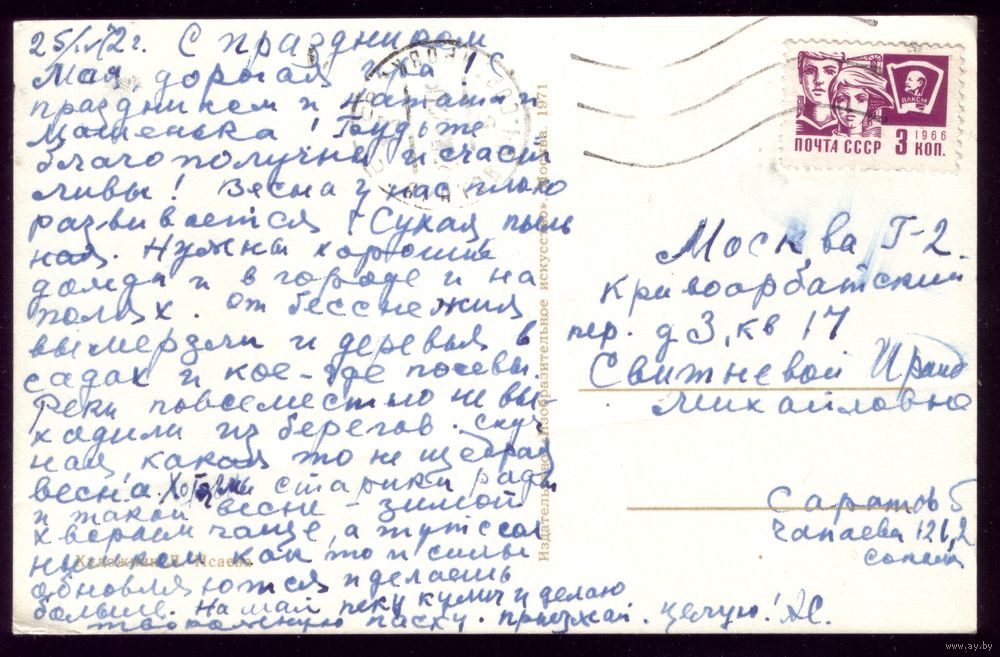 25/IV 72 г. С праздником
Мая, дорогая Ика! С
праздником и Наташа и
Машенька! Будьте
благополучны и счаст
ливы! Весна у нас плохо
развивается. Сухая пыль
ная. Нужны хорошие
дожди и в городе и на
полях. От бесснежия
вымерзли и деревья в
садах и кое-где посевы.
Реки повсеместно не вы-
ходили из берегов. Скуч
ная, какая то не щедрая
весна. Хотя мы старики рады
и такой весне - зимой
хвораем чаще, а тут с сол
нышком как то и силы
обновляются и делаешь
больше. На май пеку кулич и делаю
творожную пасху. Приезжай. Целую! АС.
Художник Л. Исаева
Издательство «Изобразительное искусство». Москва. 1971
ВЛКСМ
1966
ПОЧТА СССР 3 КОП.
Москва, Г-2.
Кривоарбатский
пер. д 3, кв 17
Свижневой Ираид
Михайловне
Саратов 5
Чапаева 121,2
www.ay.by